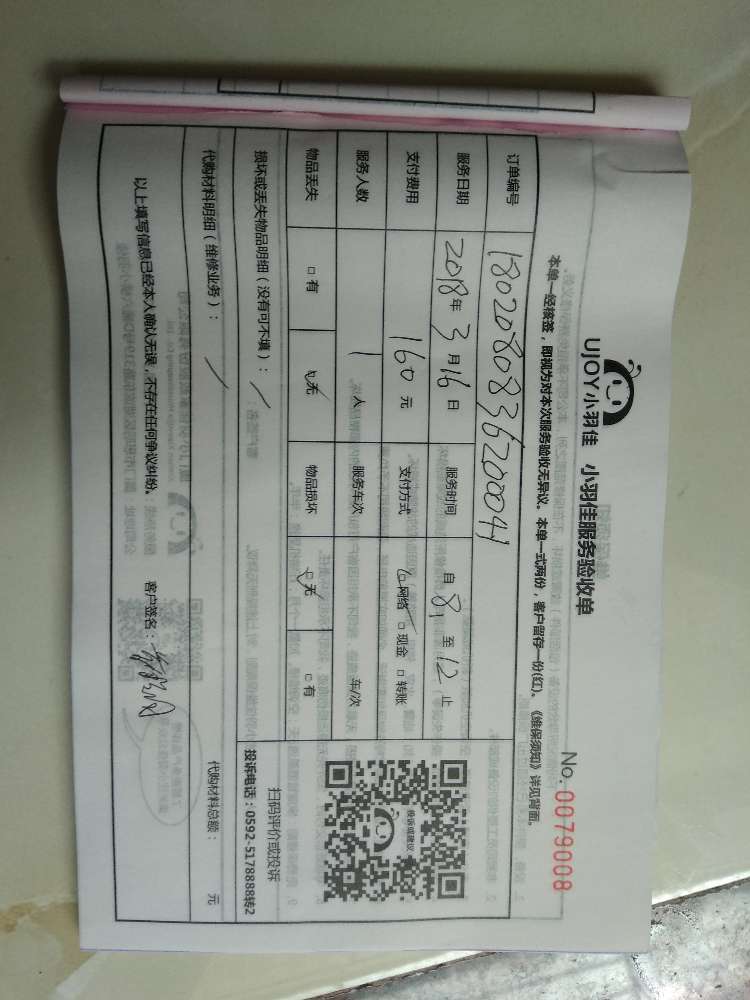 UJOY小羽佳 小羽佳服务验收单
No. 0079008
本单一经核签,即视为对本次服务验收无异议。本单一式两份,客户留存一份(红)。《维保须知》详见背面。
订单编号 180208083620004
服务日期 2018年3月16日 服务时间 自8至12止
支付费用 160元 支付方式 ☑网络 □现金 □转账
服务人数 1人 服务车次 车/次
物品丢失 □有 ☑无 物品损坏 ☑无 □有
投诉或建议
扫码评价或投诉
投诉电话:0592-5178888转2
损坏或丢失物品明细(没有可不填): /
代购材料明细(维修业务): / 代购材料总额: 元
以上填写信息已经本人确认无误,不存在任何争议纠纷。 客户签名: